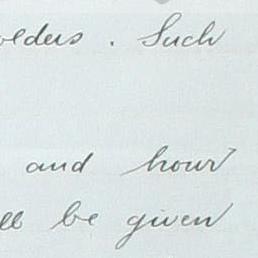 olders. Such
and hour
ll be given